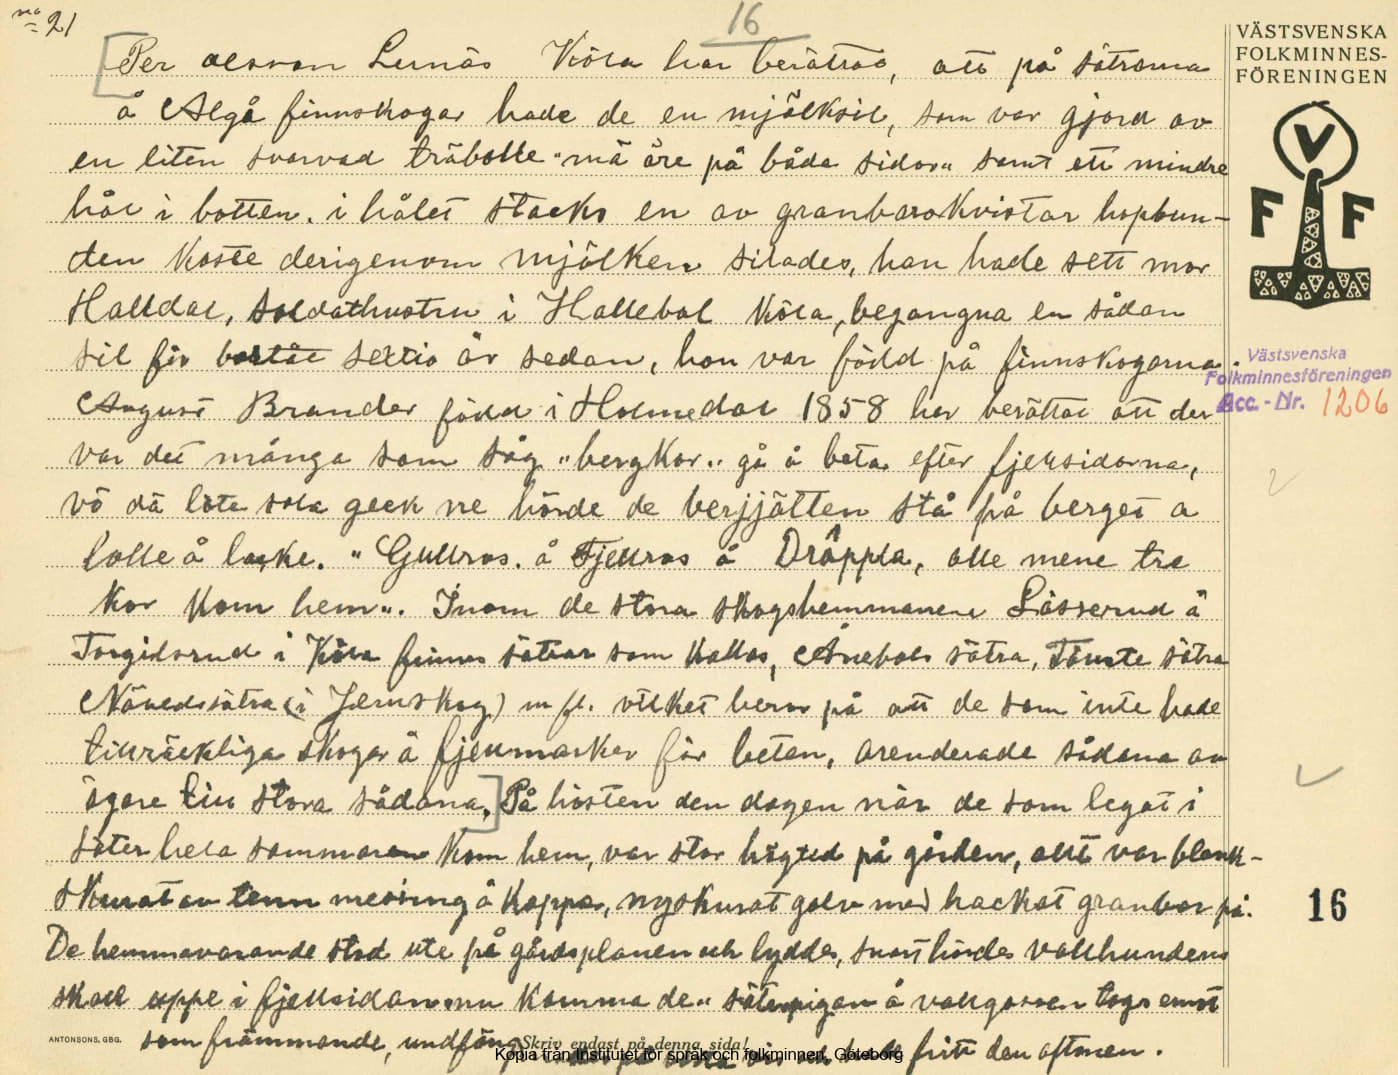 no 21
16
Per olsson Lunäs Köla har berättat, att på sätrarna
å Algå finnskogar hade de en mjölksil, som var gjord av
en liten svarvad träbolle "mä öre på båda sidor" samt ett mindre
hål i botten. i hålet stacks en av granbarskvistar hopbun-
den kaste derigenom mjölken silades, han hade sett mor
Halldal, soldathustru i Hallebol Köla, begangna en sådan
sil för sextio år sedan, hon var född på finnskogarna.
August Brander född i Holmedal 1858 har berättat att der
var det många som såg "bergkor" gå å beta efter fjellsidorna,
vö dä lite sola geek ne hörde de berjjätten stå på berget a
lolle å locke. "Gullros. å Fjellros å Dråppla, alle mene tre
kor kom hem". Inom de stora skogshemmanen Lässerud å
Torgilsrud i Köla finnes sätrar som kallas, Ånebols sätra, Tömte sätra
Nävedssätra (i Jernskog) m fl. vilket beror på att de som inte hade
tillräckliga skogar å fjellmarker för beten, arenderade sådana av
ägare till stora sådana. På hösten den dagen när de som legat i
säter hela sommaren kom hem, var stor högtid på gården, allt var blank-
skurat av tenn messing å koppar, nyskurat golv med hackat granbar på.
De hemmavarande stod ute på gårdsplanen och lydde, snart hördes vallhundens
skall uppe i fjellsidan, nu komma de" säterpigan å vallgossen togs emot
som främmande, undfäng och hade fritt den aftonen.
VÄSTSVENSKA
FOLKMINNES-
FÖRENINGEN
V
F F
Västsvenska
Folkminnesföreningen
Acc. - Nr. 1206
16
ANTONSONS, GBG.
Skriv endast på denna sida!
Kopia från Institutet för språk och folkminnen, Göteborg